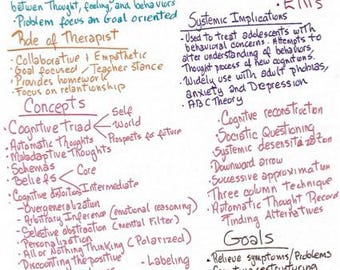 between Thought, feeling, and behaviors
• Problem focus an Goal oriented
Role of Therapist
• Collaborative & Empathetic
• Goal focused / Teacher stance
• Provides homework
• Focus on relationship
Concepts
• Cognitive Triad
Self
World
Prospects for future
• Automatic Thoughts
• Maladaptive Thoughts
• Schemas
• Beliefs
Core
Intermediate
• Cognitive Distortions
- Overgeneralization
- Arbitrary Inference (emotional reasoning)
- Selective abstraction (mental Filter)
- Personalization
- All or Nothing Thinking (Polarized)
- Discounting the positive
- Labeling
• Ellis
Systemic Implications
• Used to treat adolescents with
behavioral concerns. Attempts to
alter understanding of behaviors,
Thought process of new cognitions.
• Widely use with adult phobias,
anxiety and Depression
• ABC Theory
• Cognitive reconstruction
• Socratic Questioning
• Systematic desensitization
• Downward arrow
• Successive approximation
• Three column technique
• Automatic Thought Record
• Finding Alternatives
Goals
• Relieve symptoms/Problems